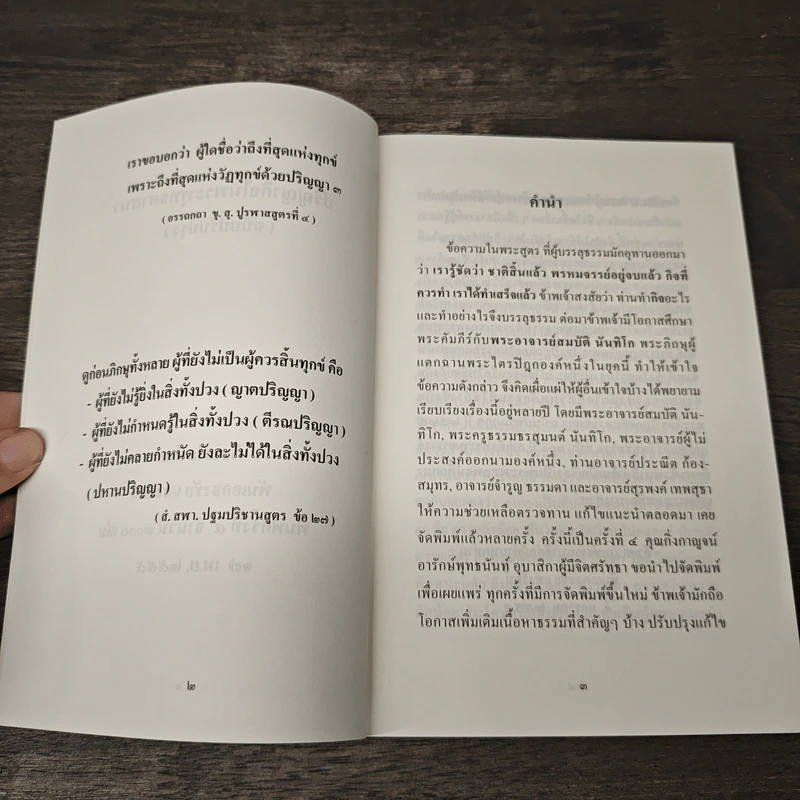 เราขอบอกว่า ผู้ใดชื่อว่าถึงที่สุดแห่งทุกข์
เพราะถึงที่สุดแห่งวัฏทุกข์ด้วยปริญญา ๓
( อรรถกถา ขุ. สุ. ปูรพาสสูตรที่ ๔ )
ดูก่อนภิกษุทั้งหลาย ผู้ที่ยังไม่เป็นผู้ควรสิ้นทุกข์ คือ
- ผู้ที่ยังไม่รู้ยิ่งในสิ่งทั้งปวง ( ญาตปริญญา )
- ผู้ที่ยังไม่กำหนดรู้ในสิ่งทั้งปวง ( ตีรณปริญญา )
- ผู้ที่ยังไม่คลายกำหนัด ยังละไม่ได้ในสิ่งทั้งปวง
( ปหานปริญญา )
( สํ. สฬา. ปฐมปริชานสูตร ข้อ ๒๗ )
๒
คำนำ
ข้อความในพระสูตร ที่ผู้บรรลุธรรมมักอุทานออกมา
ว่า เรารู้ชัดว่า ชาติสิ้นแล้ว พรหมจรรย์อยู่จบแล้ว กิจที่
ควรทำ เราได้ทำเสร็จแล้ว ข้าพเจ้าสงสัยว่า ท่านทำกิจอะไร
และทำอย่างไรจึงบรรลุธรรม ต่อมาข้าพเจ้ามีโอกาสศึกษา
พระคัมภีร์กับพระอาจารย์สมบัติ นันทิโก พระภิกษุผู้
แตกฉานพระไตรปิฎกองค์หนึ่งในยุคนี้ ทำให้เข้าใจ
ข้อความดังกล่าว จึงคิดเผื่อแผ่ให้ผู้อื่นเข้าใจบ้างได้พยายาม
เรียบเรียงเรื่องนี้อยู่หลายปี โดยมีพระอาจารย์สมบัติ นัน-
ทิโก, พระครูธรรมธรสุมนต์ นันทิโก, พระอาจารย์ผู้ไม่
ประสงค์ออกนามองค์หนึ่ง, ท่านอาจารย์ประณีต ก้อง-
สมุทร, อาจารย์จำรูญ ธรรมดา และอาจารย์สุรพงค์ เทพสุธา
ให้ความช่วยเหลือตรวจทาน แก้ไขแนะนำตลอดมา เคย
จัดพิมพ์แล้วหลายครั้ง ครั้งนี้เป็นครั้งที่ ๔ คุณกิ่งกาญจน์
อารักษ์พุทธนันท์ อุบาสิกาผู้มีจิตศรัทธา ขอนำไปจัดพิมพ์
เพื่อเผยแพร่ ทุกครั้งที่มีการจัดพิมพ์ขึ้นใหม่ ข้าพเจ้ามักถือ
โอกาสเพิ่มเติมเนื้อหาธรรมที่สำคัญๆ บ้าง ปรับปรุงแก้ไข
๓